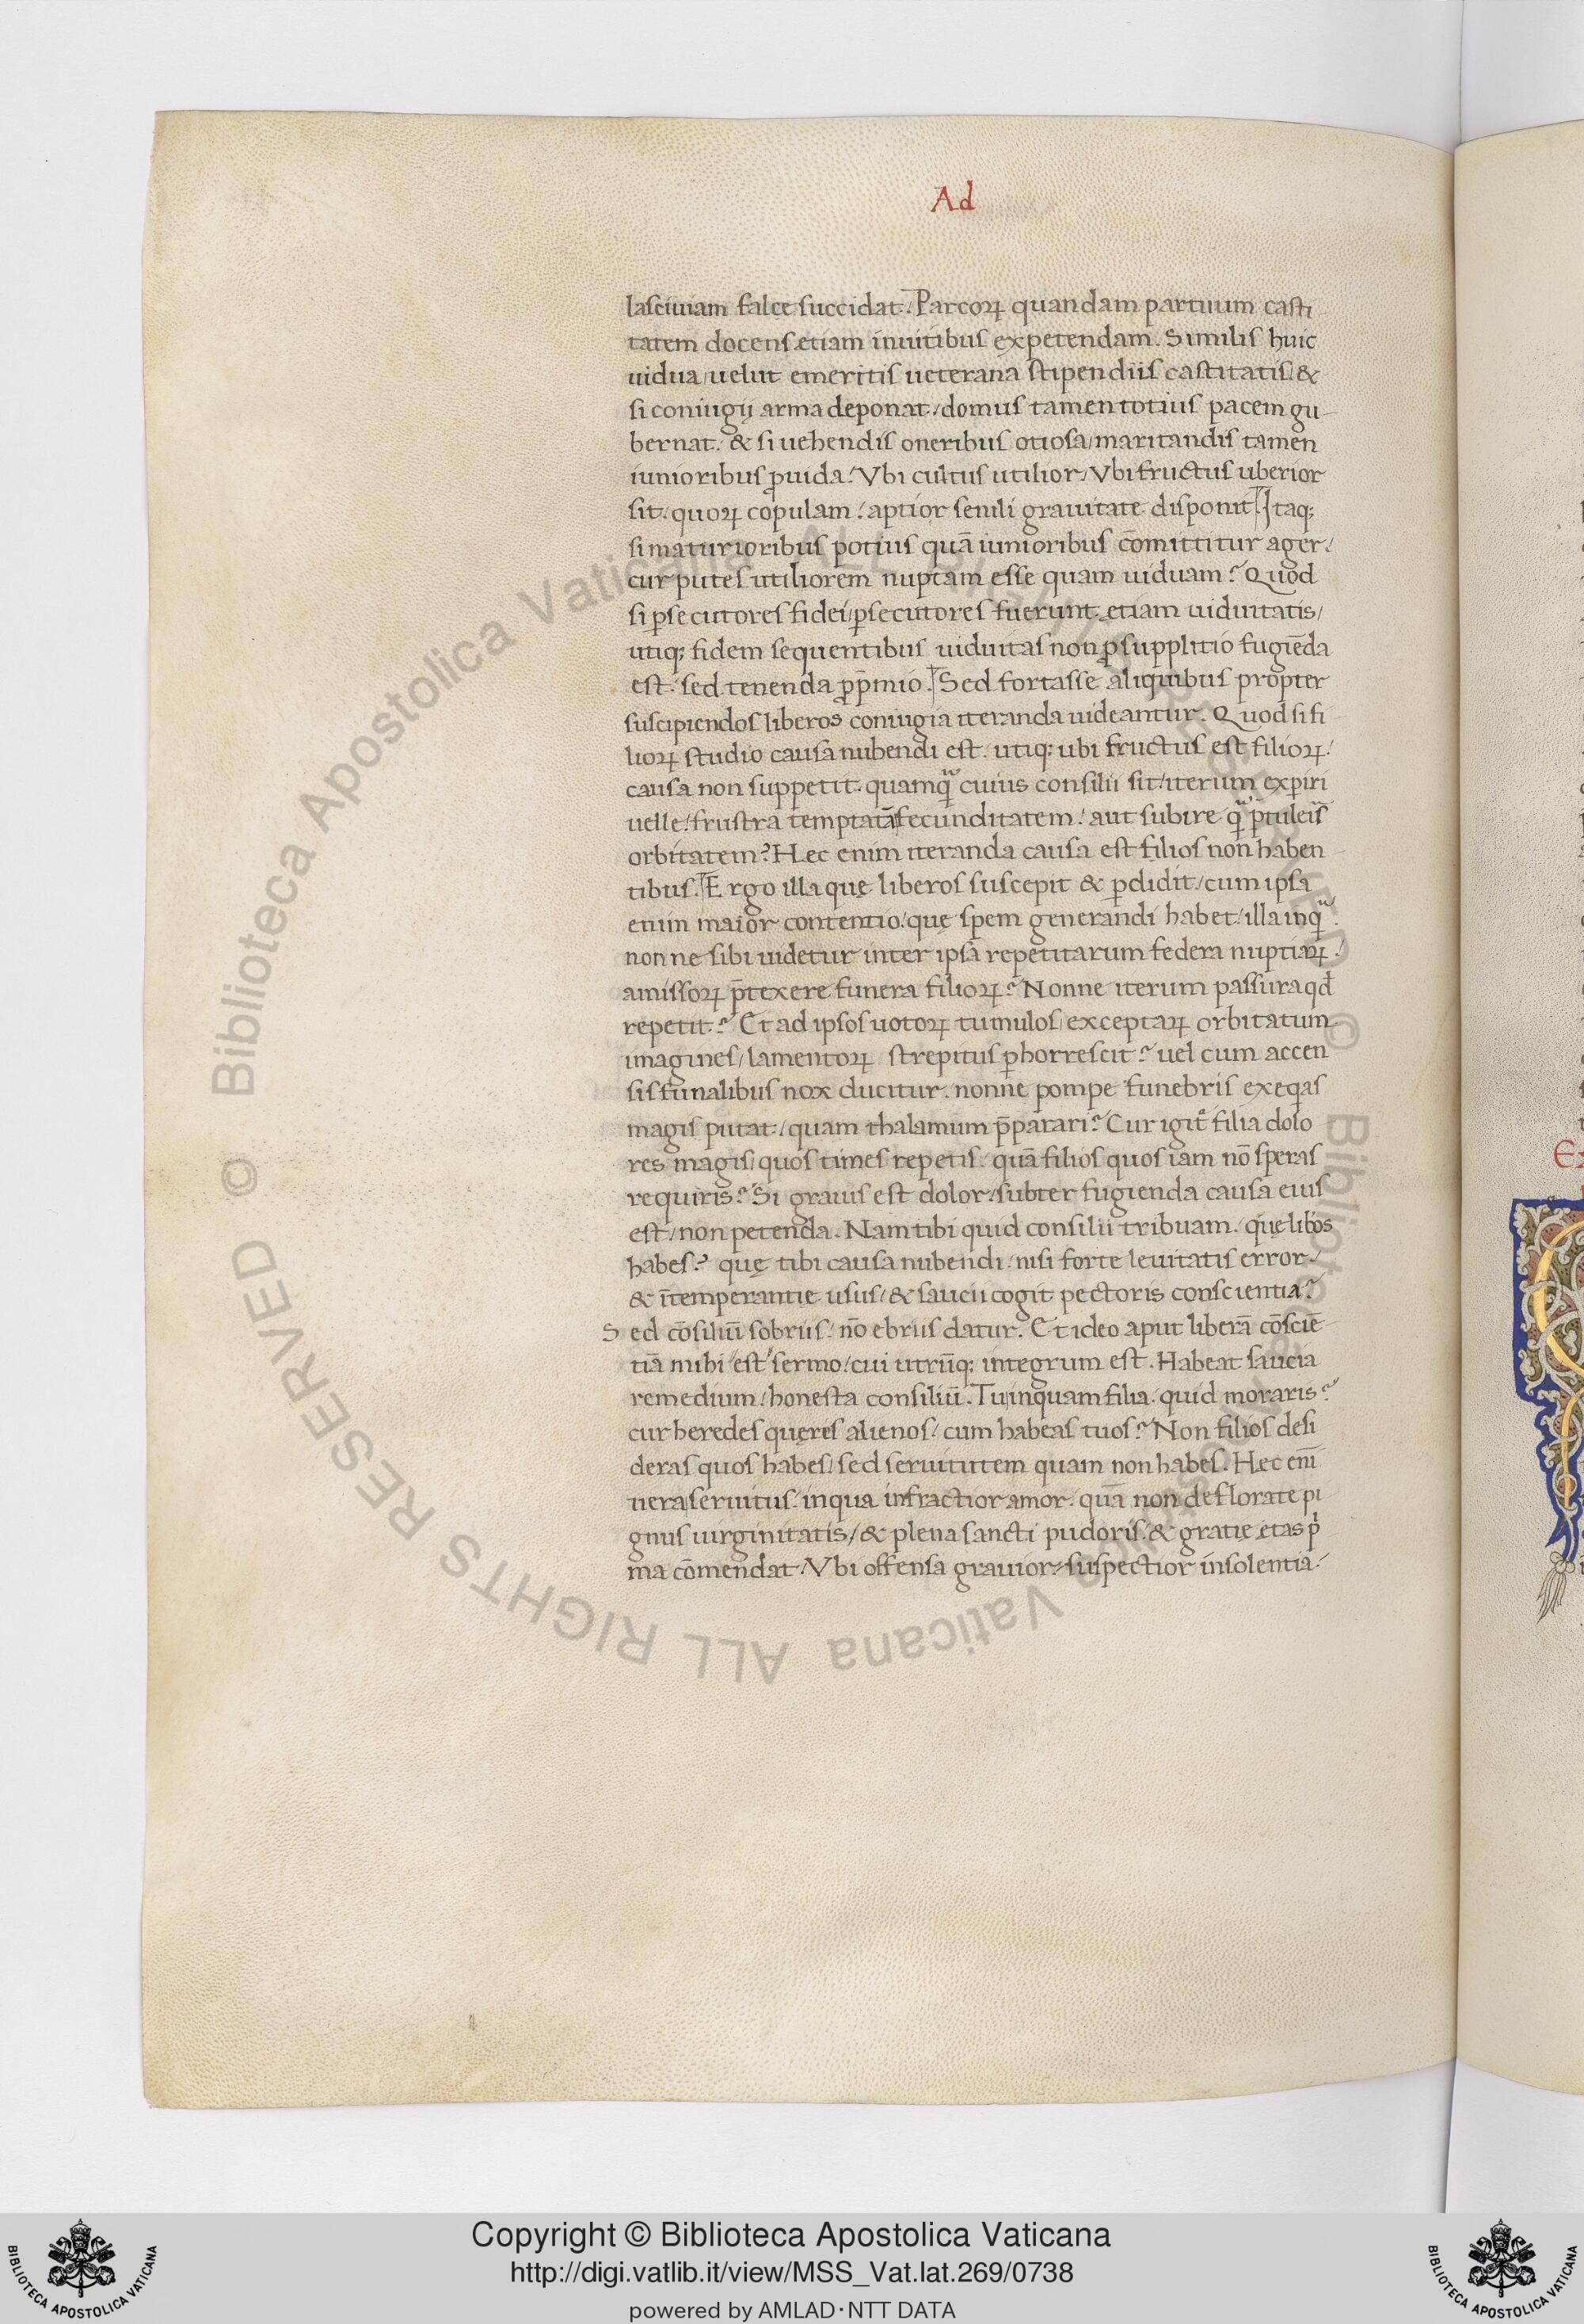 Ad
lasciuiam falce succidat. Parcoꝝ quandam partuum casti
tatem docens etiam inuitibus expetendam. Similis huic
uidua/uelut emeritis ueterana stipendiis castitatis/&
si coniugij arma deponat/domus tamen totius pacem gu-
bernat. & si uehendis oneribus otiosa/maritandis tamen
iunioribus ꝓuida. Vbi cultus utilior/Vbi fructus uberior
sit/quoꝝ copulam/aptior senili grauitate disponit. Itaq;
si maturioribus potius quā iunioribus cōmittitur ager/
cur putes utiliorem nuptam esse quam uiduam? Quod
si ꝑsecutores fidei/ꝑsecutores fuerunt etiam uiduitatis/
utiq; fidem sequentibus uiduitas non ꝓ supplitio fugiēda
est/sed tenenda ꝓ p̄mio. Sed fortasse aliquibus propter
suscipiendos liberos coniugia iteranda uideantur. Quod si fi
lioꝝ studio causa nubendi est. utiq; ubi fructus est filioꝝ/
causa non suppetit. quamqᷓ cuius consilii sit/iterum experiri
uelle/frustra temptatā fecunditatem/aut subire qᷓ p̄tuleis
orbitatem? Hec enim iteranda causa est filios non haben
tibus. Ergo illa quę liberos suscepit & ꝑdidit/cum ipsa
enim maior contentio/quę spem generandi habet/illa inqᷓ
nonne sibi uidetur inter ipsā repetitarum federa nuptiaꝝ/
amissoꝝ p̄texere funera filioꝝ? Nonne iterum passura qd̄
repetit? Et ad ipsos uotoꝝ tumulos/exceptaꝝ orbitatum
imagines/lamentoꝝ strepitus ꝑhorrescit? uel cum accen
sis funalibus nox ducitur. nonne pompe funebris exeqias
magis putat/quam thalamum p̄parari? Cur igit᷑ filia dolo
res magis/quos times repetis/quā filios quos iam nō speras
requiris? Si grauis est dolor/subter fugienda causa eius
est/non petenda. Nam tibi quid consilii tribuam. quę lib̓os
habes? quę tibi causa nubendi/nisi forte leuitatis error/
& ītemperantie usus/& saucii cogit pectoris conscientia?
Sed cōsiliū sobriis/nō ebriis datur. Et ideo aput liberā cōsciē
tiā mihi est sermo/cui utrūq; integrum est. Habeat saucia
remedium/honesta consiliū. Tu inquam filia quid moraris?
cur heredes quęres alienos/cum habeas tuos? Non filios desi
deras quos habes/sed seruitutem quam non habes. Hec enī
uera seruitus. in qua infractior amor. quā non deflorate pi
gnus uirginitatis/& plena sancti pudoris & gratię etas p̓
ma cōmendat. Vbi offensa grauior/suspectior insolentia/
Copyright © Biblioteca Apostolica Vaticana
http://digi.vatlib.it/view/MSS_Vat.lat.269/0738
powered by AMLAD・NTT DATA
BIBLIOTECA APOSTOLICA VATICANA
BIBLIOTECA APOSTOLICA VATICANA
© Biblioteca Apostolica Vaticana ALL RIGHTS RESERVED © Biblioteca Apostolica Vaticana ALL RIGHTS RESERVED